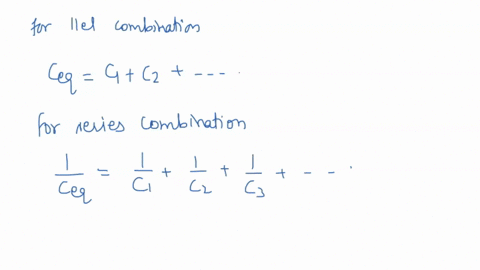 for llel combination
Ceq = C1 + C2 + ----
for series combination
1/Ceq = 1/C1 + 1/C2 + 1/C3 + -- -